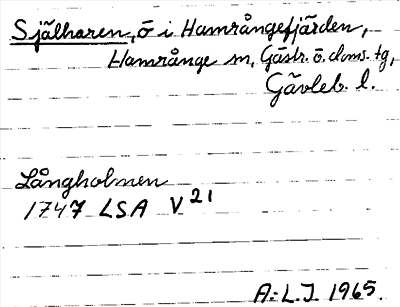 Själharen, ö i Hamrångefjärden,
Hamrånge sn, Gästr. ö. doms. tg,
Gävleb. l.
Långholmen
1747 LSA V 21
A:L.J. 1965.